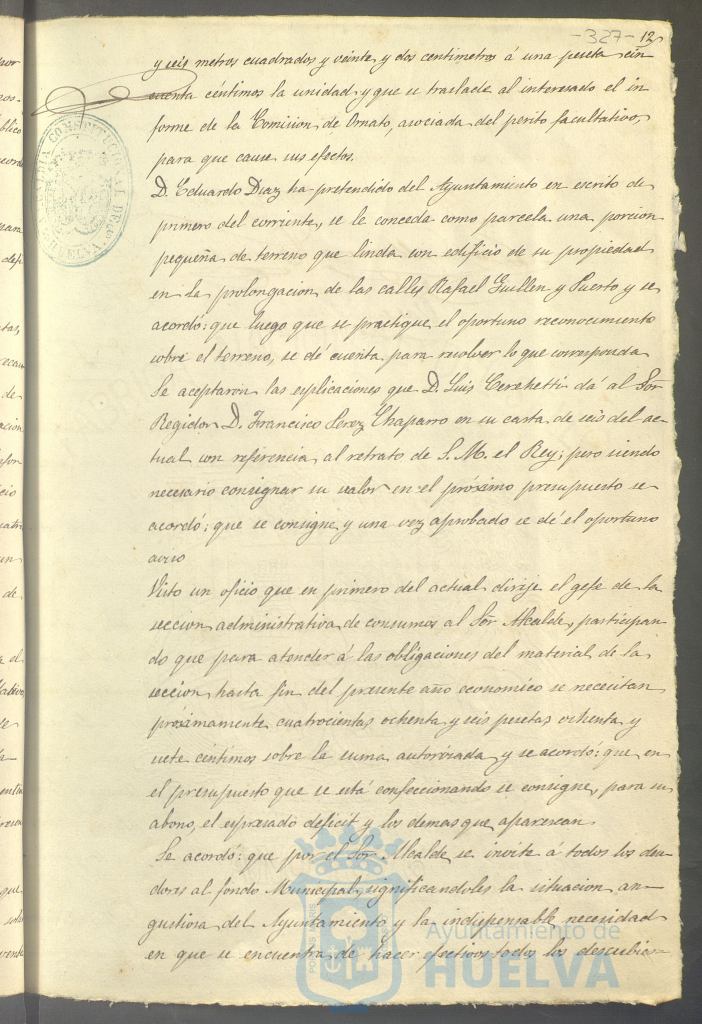 -327- 12
y seis metros cuadrados y veinte y dos centimetros á una peseta cin
cuenta céntimos la unidad y que se traslade al interesado el in
forme de la Comision de Ornato, asociada del perito facultativo,
para que cause sus efectos.
D. Eduardo Diaz ha pretendido del Ayuntamiento en escrito de
primero del corriente, se le conceda como parcela una porcion
pequeña de terreno que linda con edificio de su propiedad
en la prolongacion de las calles Rafael Guillen y Puerto y se
acordó: que luego que se practique el oportuno reconocimiento
sobre el terreno, se dé cuenta para resolver lo que corresponda
Se aceptaron las esplicaciones que D. Luis Cerehetti dá al Sor
Regidor D. Francisco Perez Chaparro en su carta de seis del ac-
tual con referencia al retrato de S. M. el Rey; pero siendo
necesario consignar su valor en el próximo presupuesto se
acordó; que se consigne y una vez aprobado se dé el oportuno
aviso
Visto un oficio que en primero del actual dirije el gefe de la
seccion administrativa de consumos al Sor Alcalde, participan
do que para atender á las obligaciones del material de la
seccion hasta fin del presente año economico se necesitan
próximamente cuatrocientas ochenta y seis pesetas ochenta y
siete céntimos sobre la suma autorizada y se acordó: que en
el presupuesto que se está confeccionando se consigne, para su
abono, el espresado déficit y los demas que aparezcan
Se acordó: que por el Sor Alcalde se invite á todos los deu-
dores al fondo Municipal, significandoles la situacion an-
gustiosa del Ayuntamiento y la indispensable necesidad
en que se encuentra de hacer efectivos todos los descubier-
ALCALDIA CONSTITUCIONAL DE HUELVA
Ayuntamiento de
HUELVA